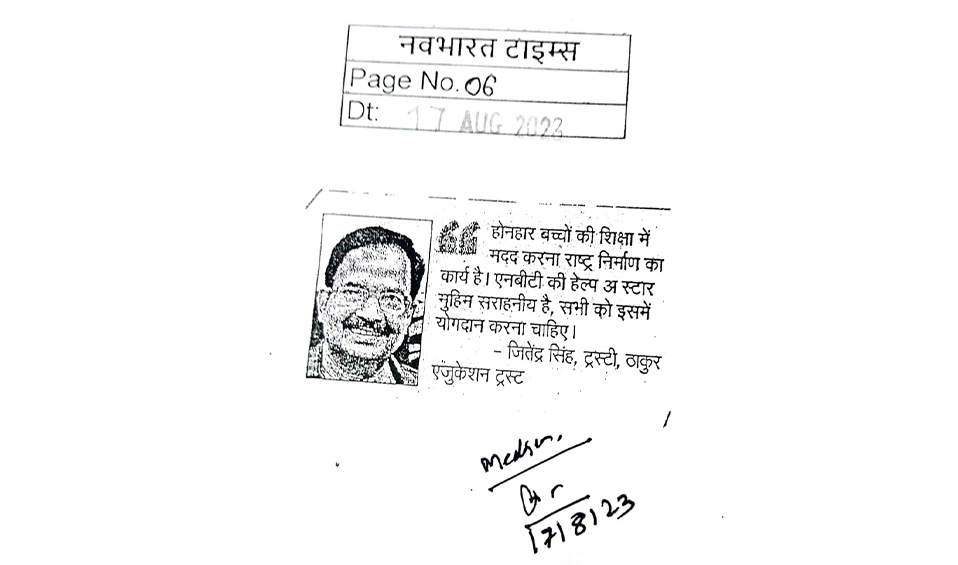 नवभारत टाइम्स
Page No. 06
Dt: 17 AUG 2023
होनहार बच्चों की शिक्षा में
मदद करना राष्ट्र निर्माण का
कार्य है। एनबीटी की हेल्प अ स्टार
मुहिम सराहनीय है, सभी को इसमें
योगदान करना चाहिए।
- जितेंद्र सिंह, ट्रस्टी, ठाकुर
एजुकेशन ट्रस्ट
17/8/23